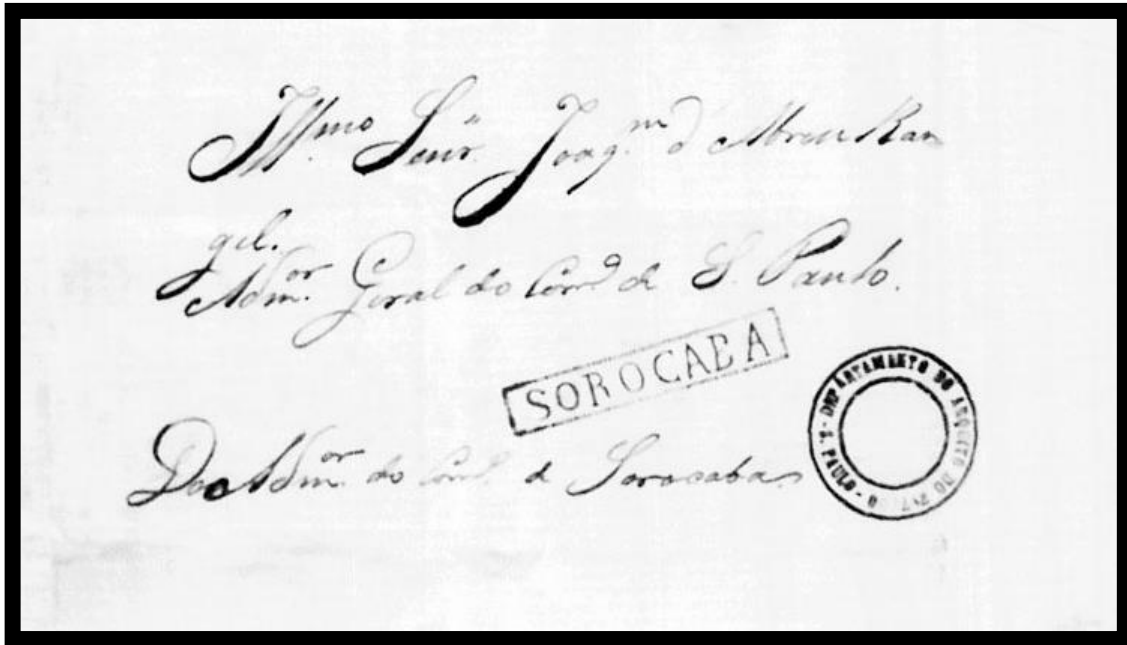 Ill.mo Senr. Joaq.m d Abreu Ran
gel.
Adm.or Geral do Corro de S. Paulo.
SOROCABA
DEPARTAMENTO DO ARQUIVO DO ESTADO - S. PAULO -
Do Adm.or do Corro. de Sorocaba